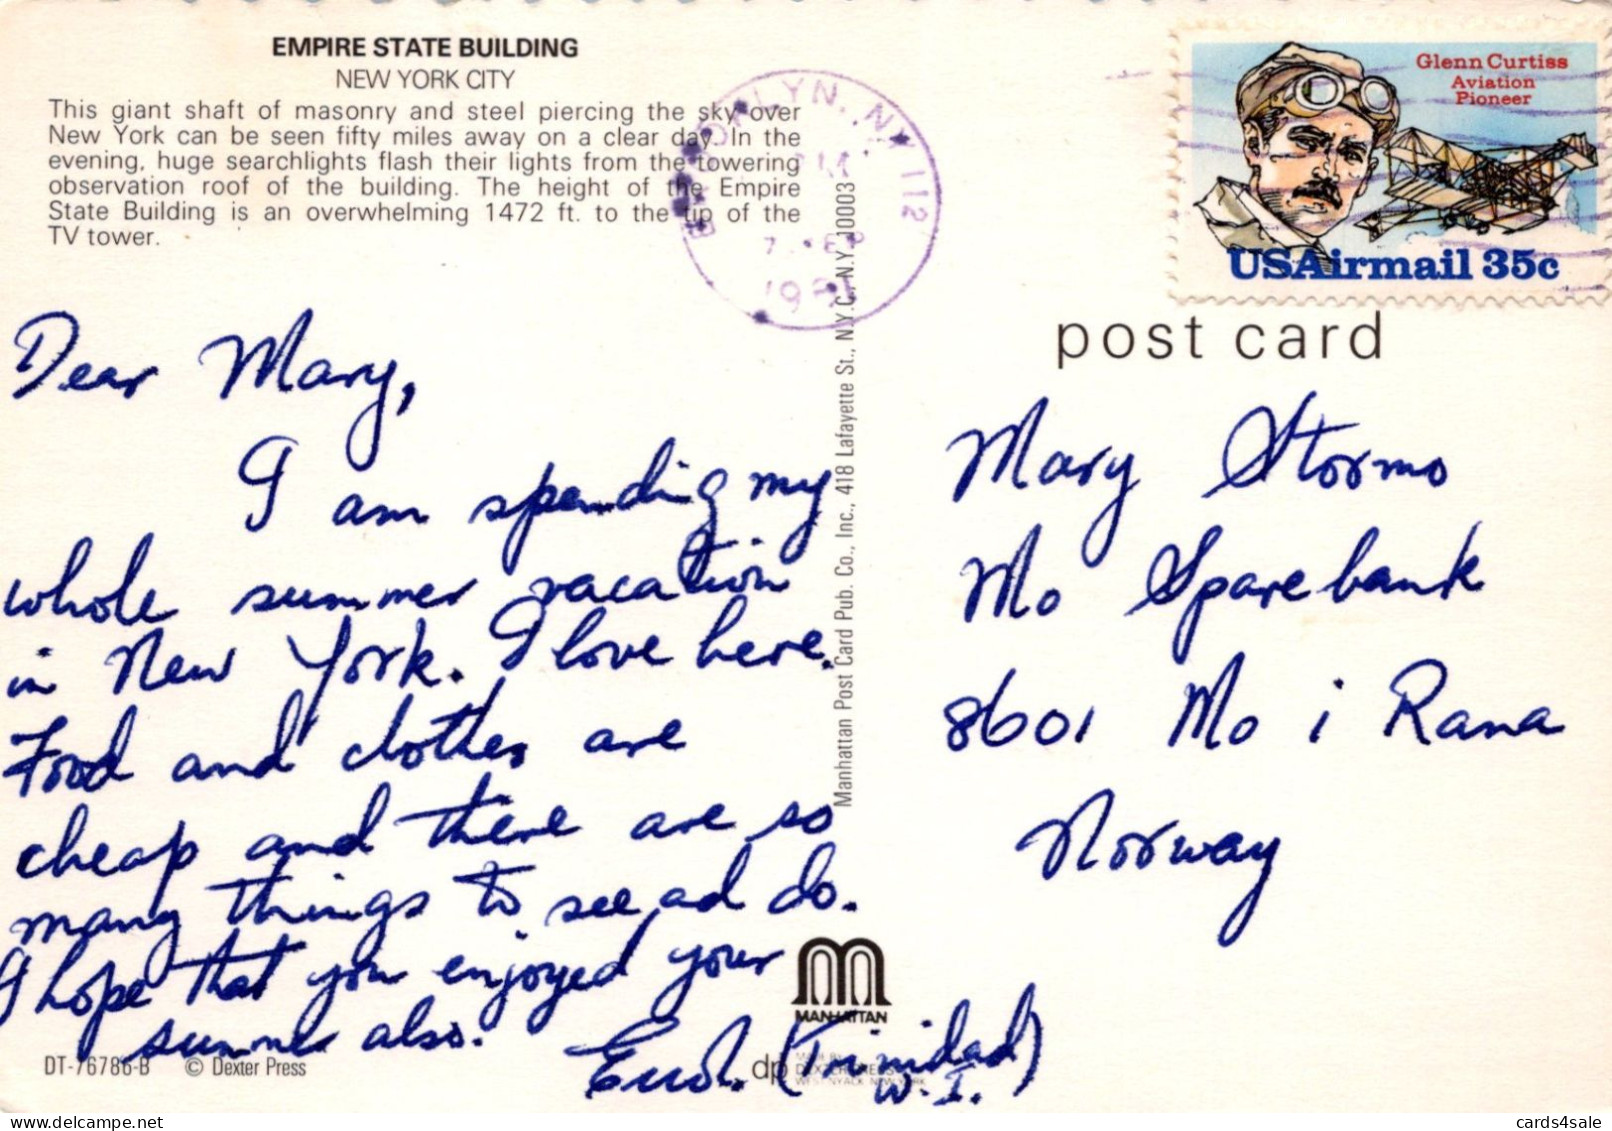 EMPIRE STATE BUILDING
NEW YORK CITY
This giant shaft of masonry and steel piercing the sky over
New York can be seen fifty miles away on a clear day. In the
evening, huge searchlights flash their lights from the towering
observation roof of the building. The height of the Empire
State Building is an overwhelming 1472 ft. to the tip of the
TV tower.
Dear Mary,
I am spending my
whole summer vacation
in New York. I love here.
Food and clothes are
cheap and there are so
many things to see ad do.
I hope that you enjoyed your
summer also.
(Trinidad)
W.I.
DT-76786-B © Dexter Press
BROOKLYN, NY 112
PM
7 SEP
1981
Manhattan Post Card Pub. Co., Inc., 418 Lafayette St., N.Y.C., N.Y. 10003
MANHATTAN
dp
MADE BY
DEXTER PRESS
WEST NYACK, NEW YORK
Glenn Curtiss
Aviation
Pioneer
USAirmail 35c
post card
Mary Stormo
Mo Sparebank
8601 Mo i Rana
Norway
cards4sale